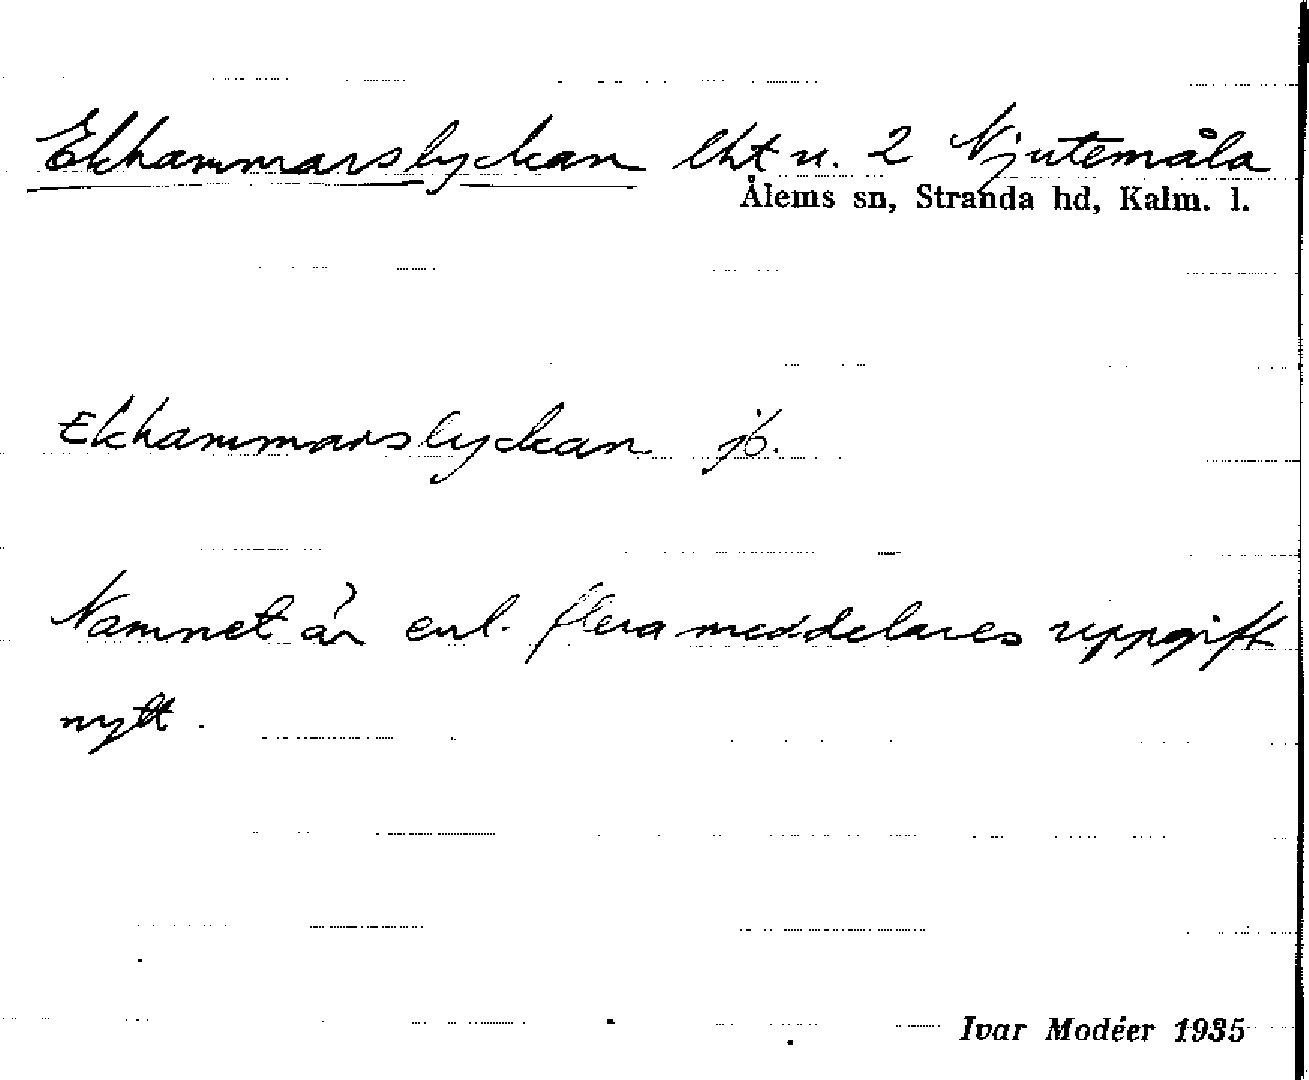 Ekhammarslyckan lht u. 2 Njutemåla
Ålems sn, Stranda hd, Kalm. l.
Ekhammarslyckan jb.
Namnet är enl. flera meddelares uppgift
nytt.
Ivar Modéer 1935